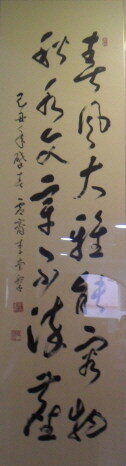 春風大雅能容物
秋水文章不染塵
己丑年